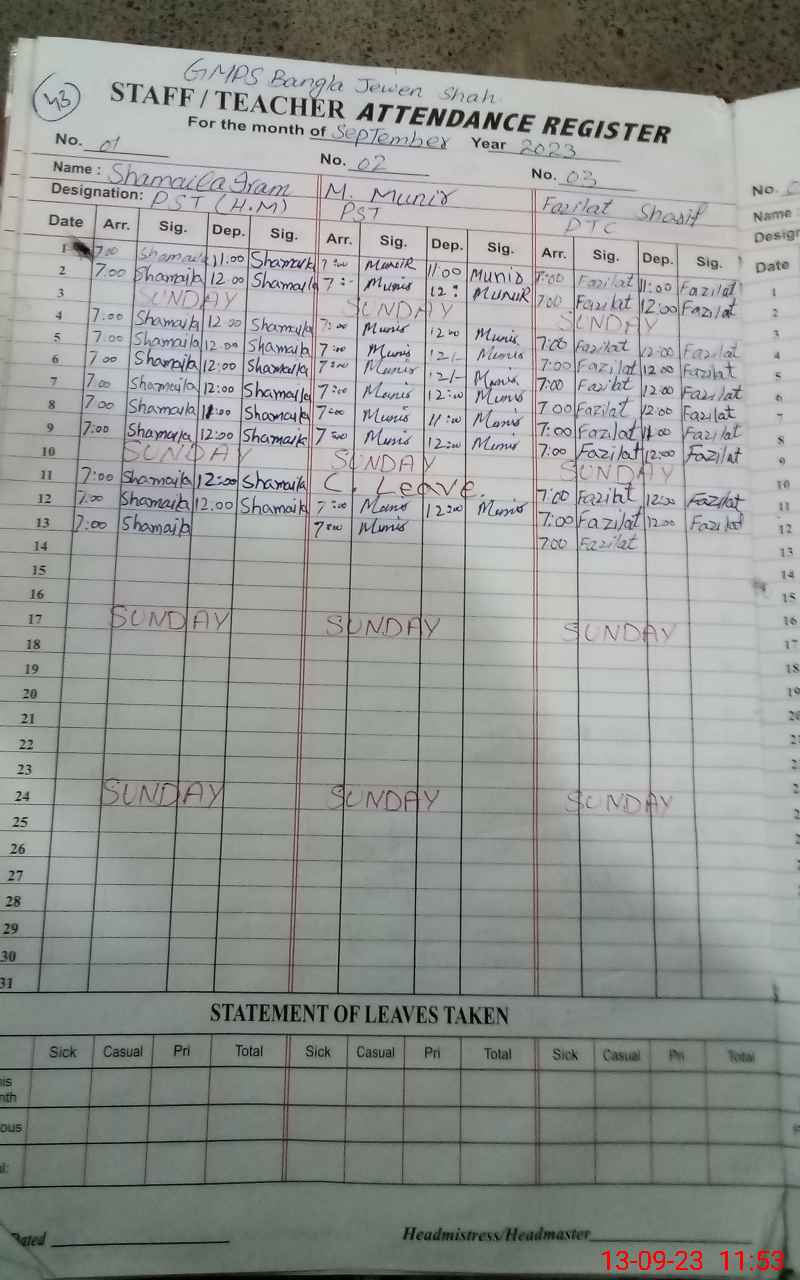 43
GMPS Bangla Jewen Shah
STAFF / TEACHER ATTENDANCE REGISTER
For the month of September Year 2023
No. 01 No. 02 No. 03 No.
Name : Shamaila Iram M. Munir Fazilat Sharif Name
Designation: PST (H.M) PST PTC
Date Arr. Sig. Dep. Sig. Arr. Sig. Dep. Sig. Arr. Sig. Dep. Sig. Date
1 7:00 Shamaila 11:00 Shamaila 7:00 Munir 11:00 Munir 7:00 Fazilat 11:00 Fazilat 1
2 7:00 Shamaila 12:00 Shamaila 7:- Munir 12: Munir 7:00 Fazilat 12:00 Fazilat 2
3 SUNDAY SUNDAY SUNDAY
4 7:00 Shamaila 12:00 Shamaila 7:00 Munir 12:00 Munir 7:00 Fazilat 12:00 Fazilat 4
5 7:00 Shamaila 12:00 Shamaila 7:00 Munir 12/- Munir 7:00 Fazilat 12:00 Fazilat 5
6 7:00 Shamaila 12:00 Shamaila 7:00 Munir 12/- Munir 7:00 Fazilat 12:00 Fazilat 6
7 7:00 Shamaila 12:00 Shamaila 7:00 Munir 12:00 Munir 7:00 Fazilat 12:00 Fazilat
8 7:00 Shamaila 11:00 Shamaila 7:00 Munir 11:00 Munir 7:00 Fazilat 11:00 Fazilat 8
9 7:00 Shamaila 12:00 Shamaila 7:00 Munir 12:00 Munir 7:00 Fazilat 12:00 Fazilat 9
10 SUNDAY SUNDAY SUNDAY 10
11 7:00 Shamaila 12:00 Shamaila C. Leave. 7:00 Fazilat 12:00 Fazilat 11
12 7:00 Shamaila 12:00 Shamaila 7:00 Munir 12:00 Munir 7:00 Fazilat 12:00 Fazilat 12
13 7:00 Shamaila 7:00 Munir 7:00 Fazilat 13
14 14
15 15
16 16
17 SUNDAY SUNDAY SUNDAY 17
18 18
19 19
20
21
22
23
24 SUNDAY SUNDAY SUNDAY
25
26
27
28
29
30
31
STATEMENT OF LEAVES TAKEN
Sick Casual Pri Total Sick Casual Pri Total Sick Casual Pri Total
Dated Headmistress/Headmaster
13-09-23 11:53